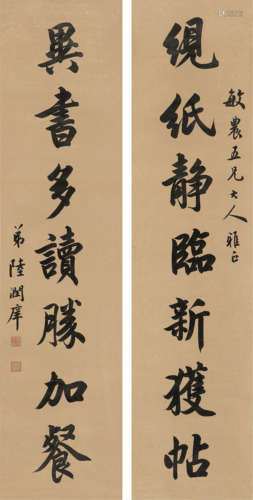 敏農五兄大人雅正
繭紙静臨新獲帖
異書多讀勝加餐
弟陸潤庠